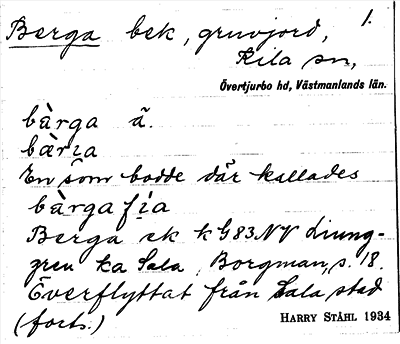 Berga bek, gruvjord, 1.
Kila sn,
Övertjurbo hd, Västmanlands län.
bàrga ä.
bærɩa
En som bodde där kallades
bàrgafia
Berga ek k G83NV Ljung-
gren ka Sala, Borgman, s. 18.
Överflyttat från Sala stad
(forts.)
HARRY STÅHL 1934